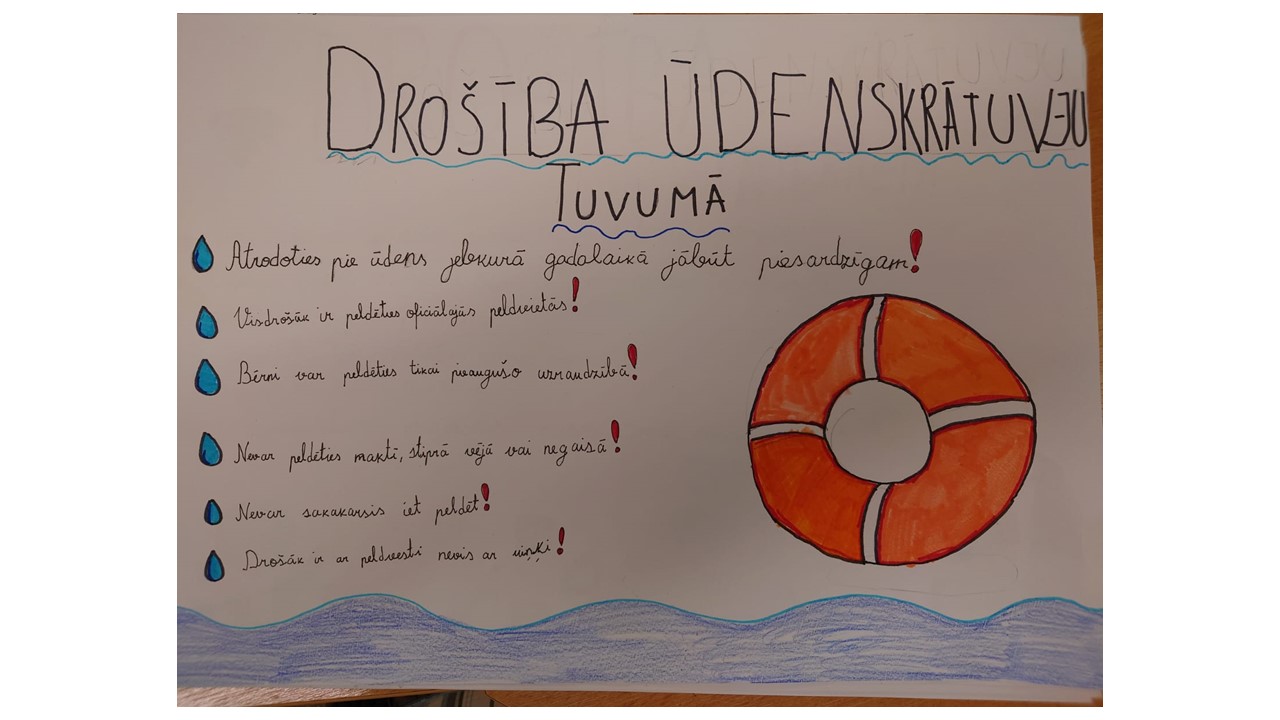 DROŠĪBA ŪDENSKRĀTUVJU
TUVUMĀ
Atrodoties pie ūdens jebkurā gadalaikā jābūt piesardzīgam!
Visdrošāk ir peldēties oficiālajās peldvietās!
Bērni var peldēties tikai pieaugušo uzraudzībā!
Nevar peldēties naktī, stiprā vējā vai negaisā!
Nevar sakakarsis iet peldēt!
Drošāk ir ar peldvesti nevis ar riņķi!